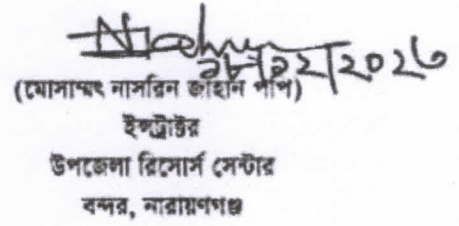 ১৮/১২/২০২৩
(মোসাম্মৎ নাসরিন জাহান পপি)
ইন্সট্রাক্টর
উপজেলা রিসোর্স সেন্টার
বন্দর, নারায়ণগঞ্জ